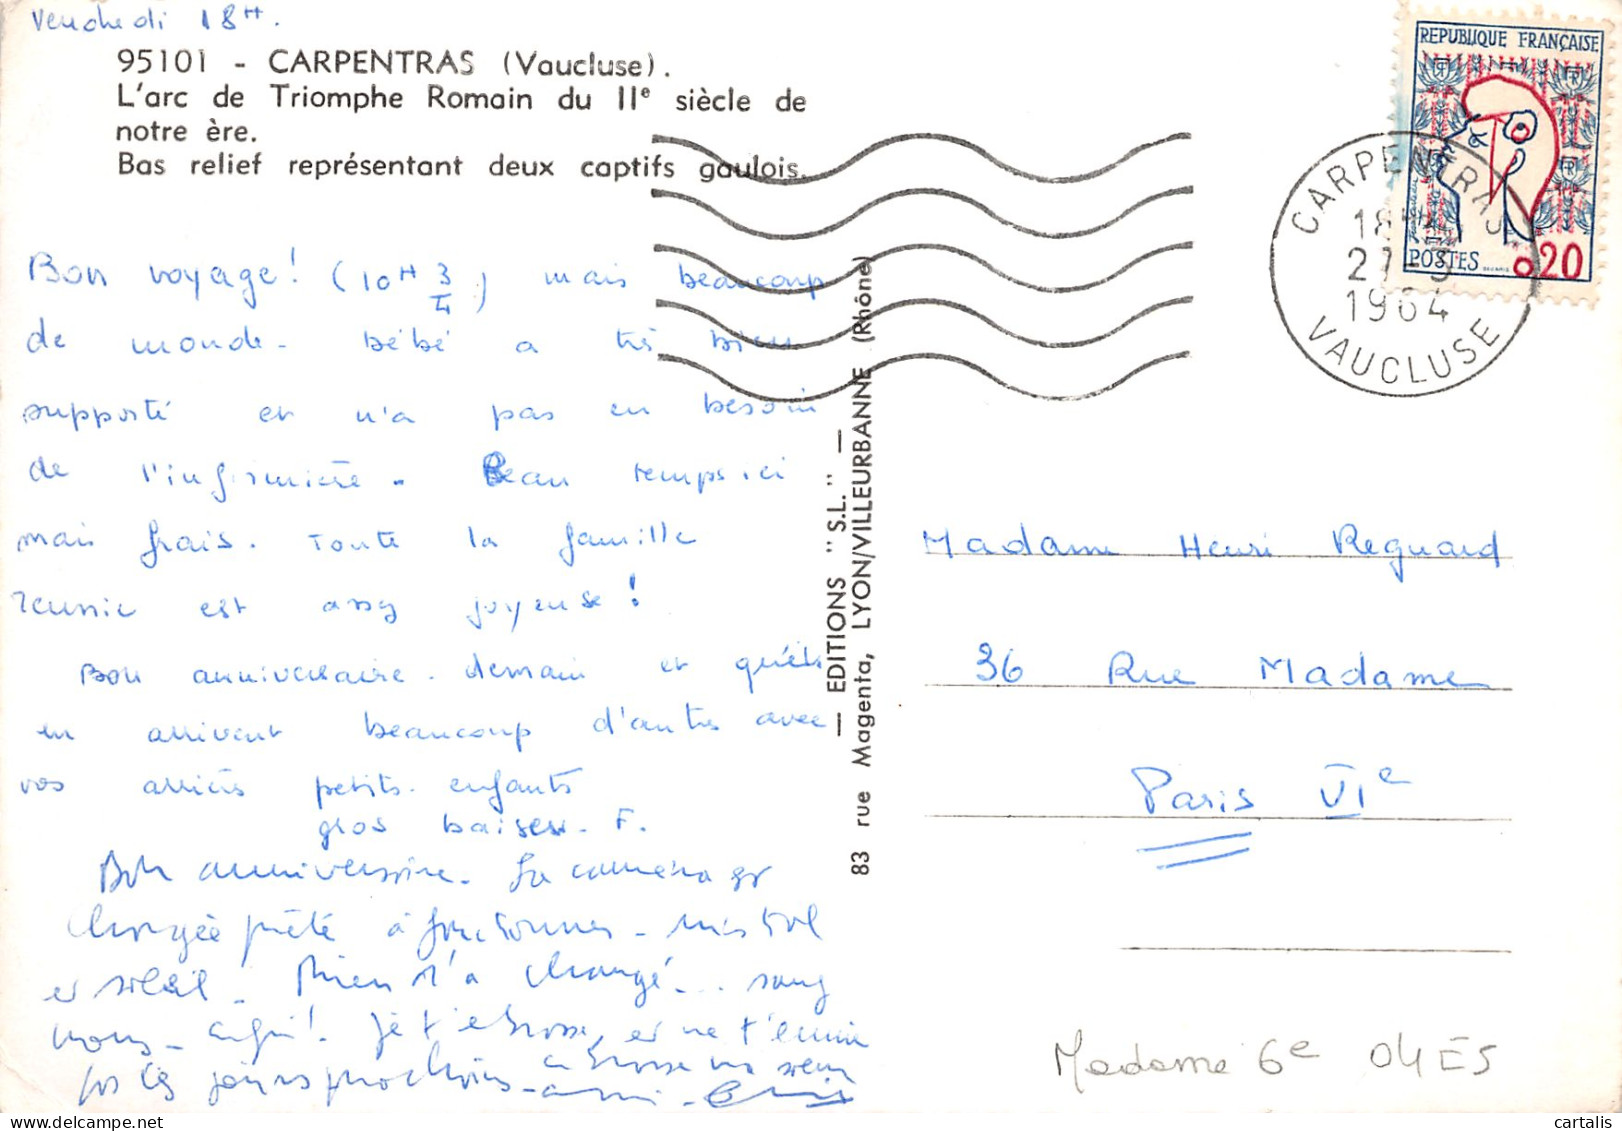 Vendredi 18H.
95101 - CARPENTRAS (Vaucluse).
L'arc de Triomphe Romain du IIe siècle de
notre ère.
Bas relief représentant deux captifs gaulois.
Bon voyage ! (10H 3/4) mais beaucoup
de monde - bébé a très bien
supporté et n'a pas eu besoin
de l'infirmière. Beau temps ici
mais frais. Toute la famille
réunie est assez joyeuse !
Bon anniversaire demain et qu'ils
en arrivent beaucoup d'autres avec
vos arrières petits-enfants
gros baisers. F.
Bon anniversaire. La caméra est
chargée prête à fonctionner - mistral
et soleil. Rien n'a changé... sauf
nous - enfin ! Je t'embrasse, et ne t'ennuie
pas les jours prochains -
embrasse ma sœur
aussi -
— EDITIONS "S.L." —
83 rue Magenta, LYON/VILLEURBANNE (Rhône)
REPUBLIQUE FRANÇAISE
POSTES
0,20
CARPENTRAS
18H
27-3
1964
VAUCLUSE
Madame Henri Regnard
36 Rue Madame
Paris VIe
Madame 6e 04 ES
cartalis
delcampe.net